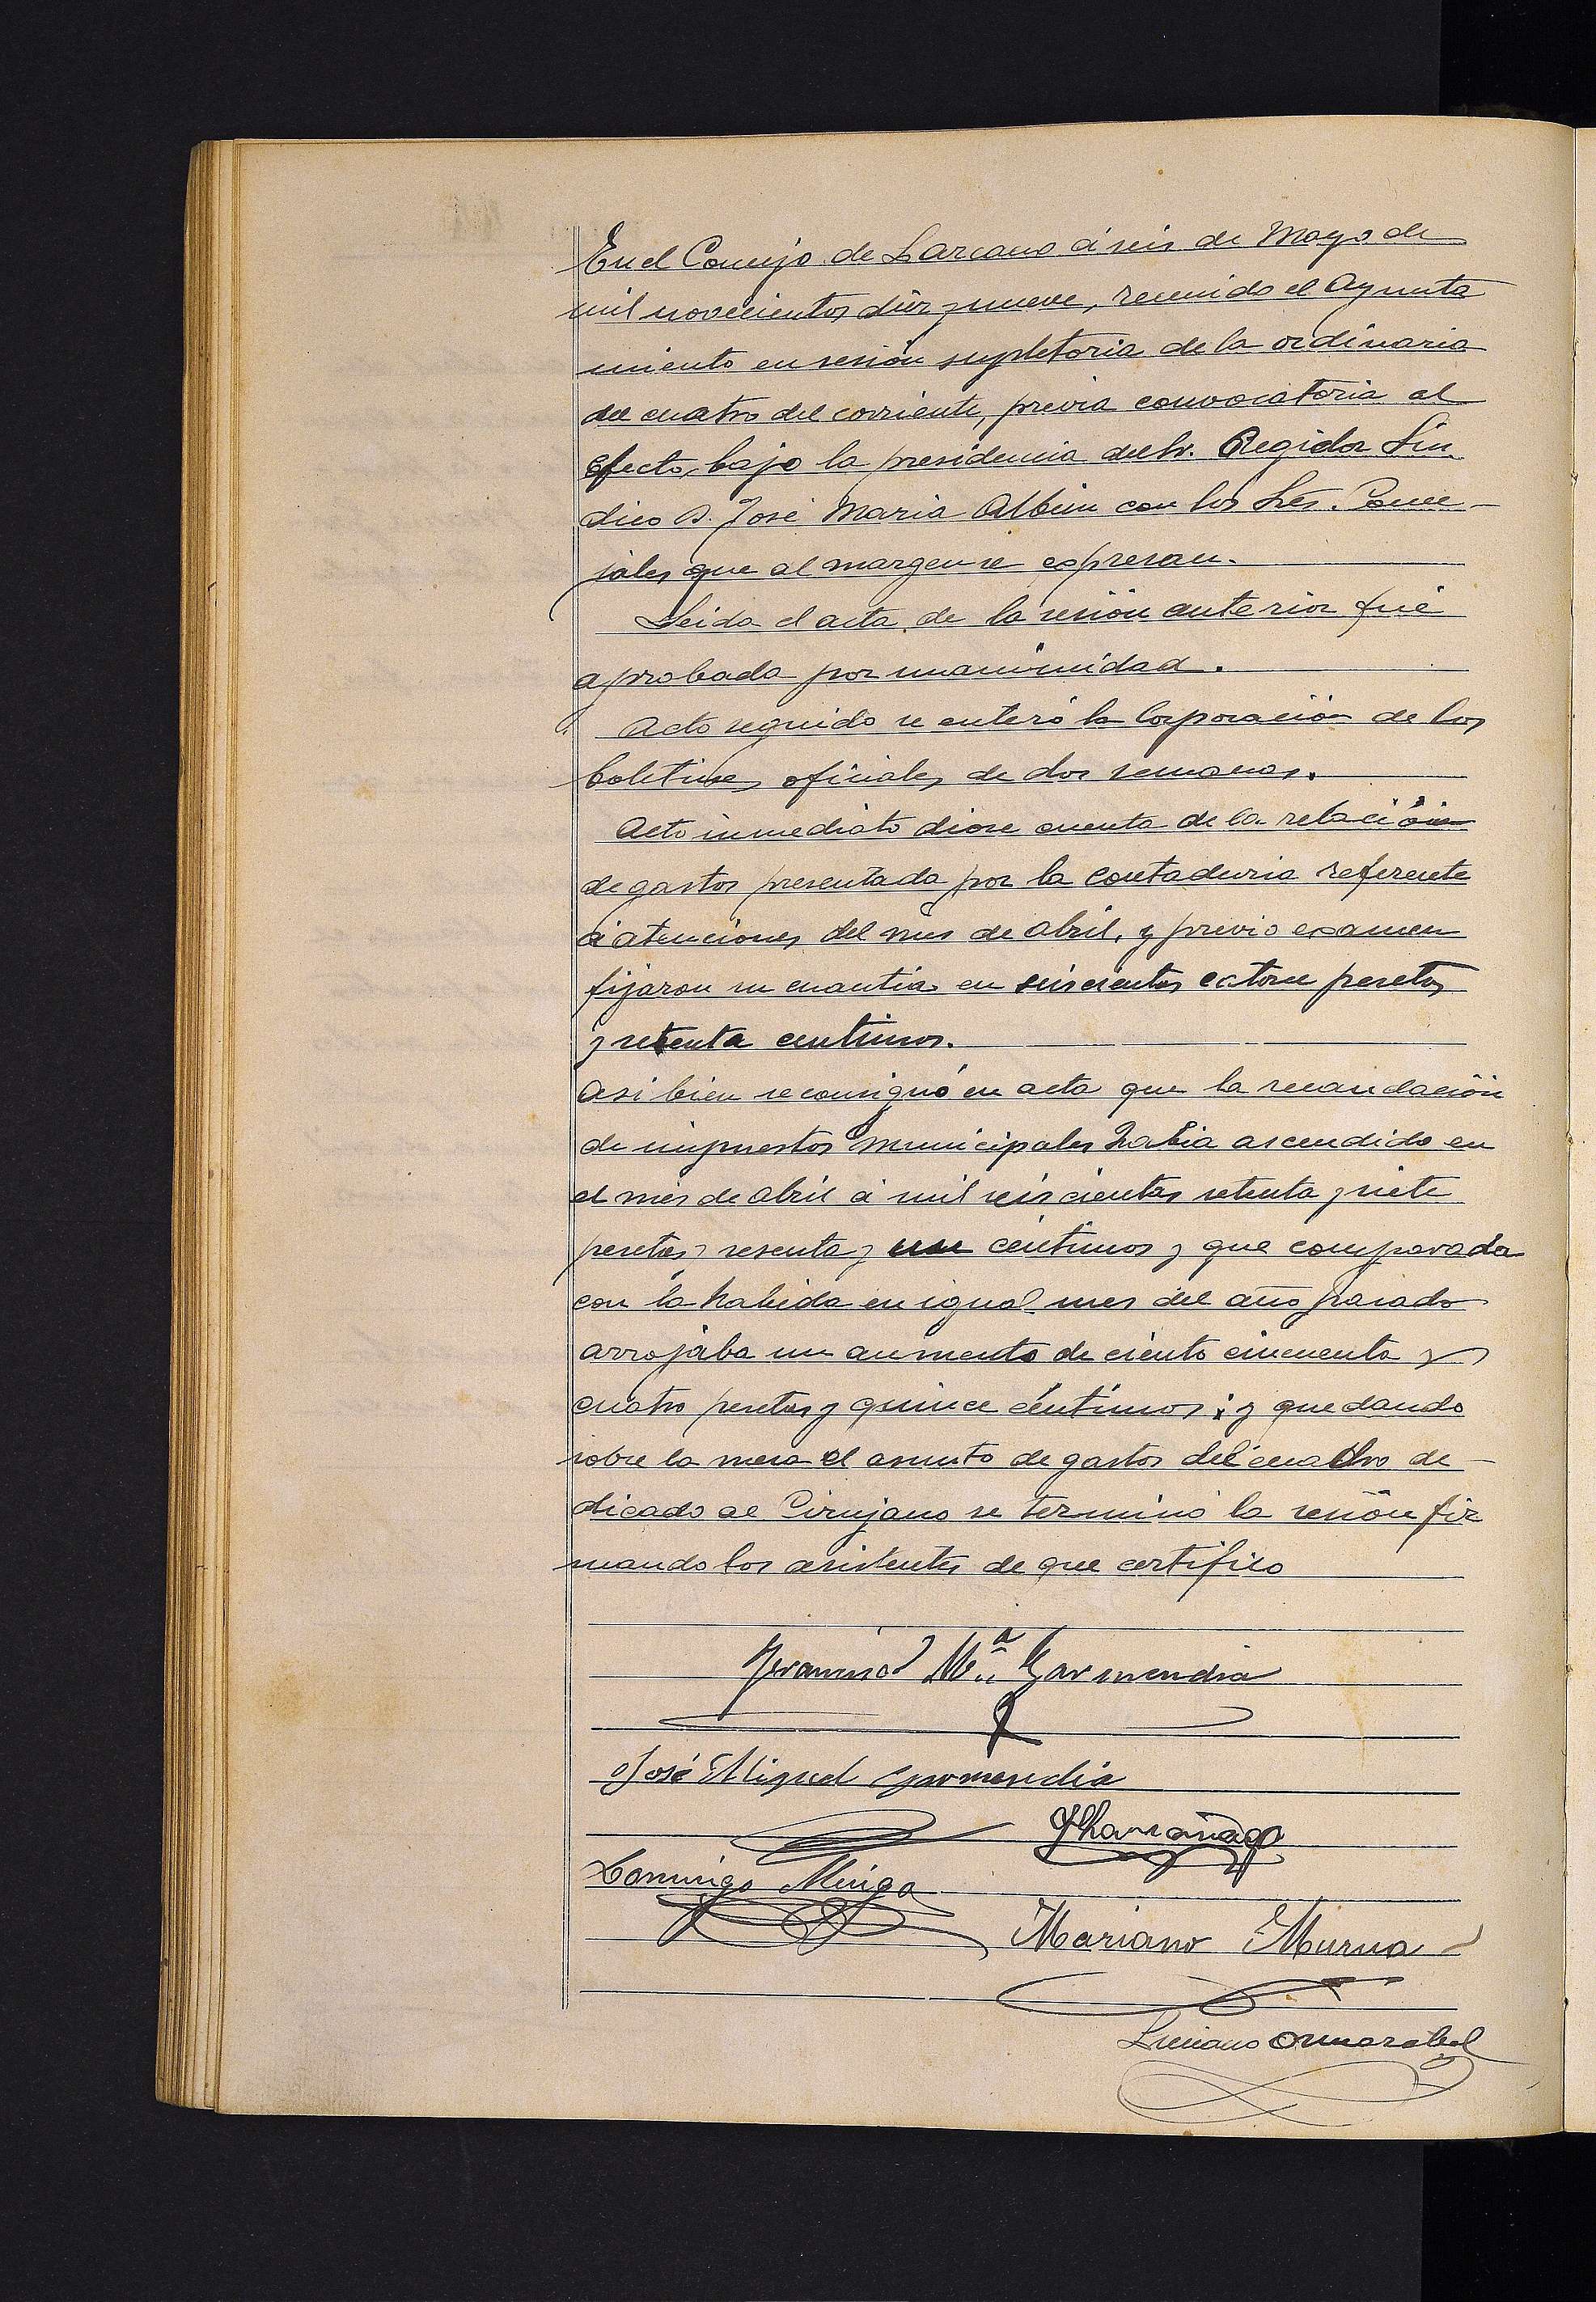 En el Concejo de Lazcano á seis de Mayo de
mil novecientos diez y nueve, reunido el Ayunta
miento en sesión supletoria de la ordinaria
del cuatro del corriente, previa convocatoria al
efecto, bajo la presidencia del Sr. Regidor Sín
dico D. José Maria Albisu con los Srés. Conce-
jales que al margen se expresan.
Leida el acta de la sesión anterior fué
aprobada por unanimidad.
Acto seguido se enteró la Corporación de los
boletines oficiales de dos semanas.
Acto inmediato diose cuenta de la relación
de gastos presentada por la Contaduria referente
á atenciones del mes de abril, y previo examen
fijaron su cuantia en seiscientas catorce pesetas
y setenta centimos.
Asi bien se consignó en acta que la recaudación
de impuestos municipales habia ascendido en
el mes de abril á mil seiscientas setenta y siete
pesetas y sesenta y un céntimos y que comparada
con la habida en igual mes del año pasado
arrojaba un aumento de ciento cincuenta y
cuatro pesetas y quince céntimos; y quedando
sobre la mesa el asunto de gastos del cuadro de-
dicado al Cirujano se terminó la sesión fir
mando los asistentes de que certifico
Mª Garmendia
José Miguel Garmendia
Domingo Múga
Mariano Murua
Luciano